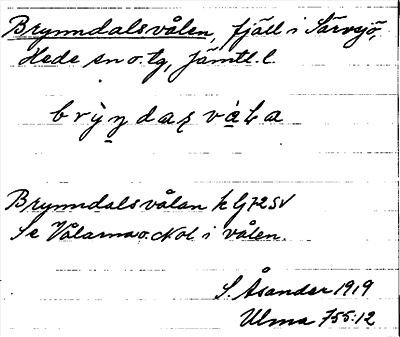 Brynndalsvålen, fjäll i Särvsjö,
Hede sn o. tg, Jämtl. l.
Brynndalsvålan k G72SV
Se Vålarna o. Nol. i vålen.
S. Åsander 1919
Ulma 755:12